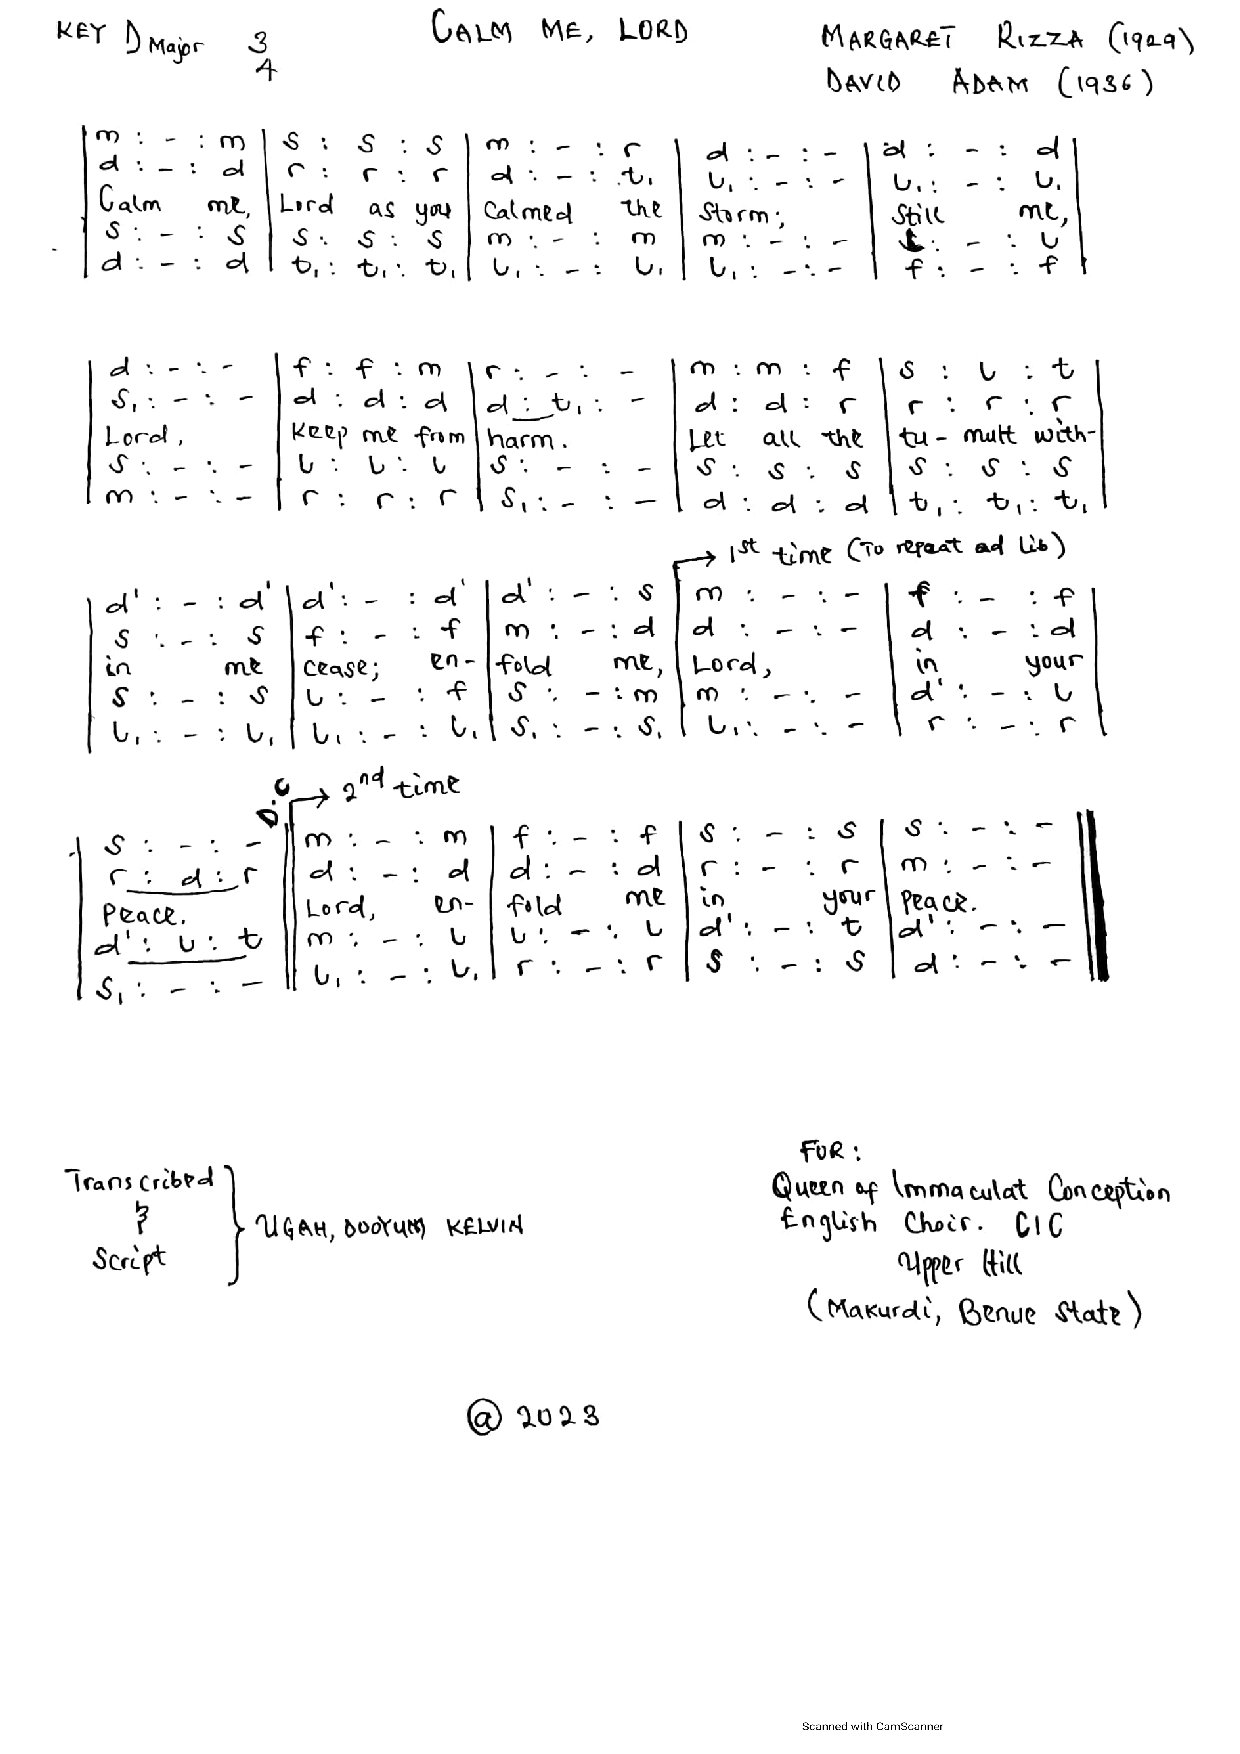 KEY D Major 3/4 CALM ME, LORD MARGARET RIZZA (1929)
DAVID ADAM (1936)
| m : - : m | s : s : s | m : - : r | d : - : - | d : - : d |
| d : - : d | r : r : r | d : - : t₁ | l₁ : - : - | l₁ : - : l₁ |
| Calm me, | Lord as you | Calmed the | Storm; | Still me, |
| s : - : s | s : s : s | m : - : m | m : - : - | l : - : l |
| d : - : d | t₁ : t₁ : t₁ | l₁ : - : l₁ | l₁ : - : - | f : - : f |
| d : - : - | f : f : m | r : - : - | m : m : f | s : l : t |
| s₁ : - : - | d : d : d | d : t₁ : - | d : d : r | r : r : r |
| Lord, | Keep me from | harm. | Let all the | tu- mult with- |
| s : - : - | l : l : l | s : - : - | s : s : s | s : s : s |
| m : - : - | r : r : r | s₁ : - : - | d : d : d | t₁ : t₁ : t₁ |
→ 1st time (To repeat ad lib)
| d' : - : d' | d' : - : d' | d' : - : s | m : - : - | f : - : f |
| s : - : s | f : - : f | m : - : d | d : - : - | d : - : d |
| in me | cease; en- | fold me, | Lord, | in your |
| s : - : s | l : - : f | s : - : m | m : - : - | d' : - : l |
| l₁ : - : l₁ | l₁ : - : l₁ | s₁ : - : s₁ | l₁ : - : - | r : - : r |
D.C → 2nd time
| s : - : - || m : - : m | f : - : f | s : - : s | s : - : - ||
| r : d : r || d : - : d | d : - : d | r : - : r | m : - : - ||
| Peace. || Lord, en- | fold me | in your | Peace. ||
| d' : l : t || m : - : l | l : - : l | d' : - : t | d' : - : - ||
| s₁ : - : - || l₁ : - : l₁ | r : - : r | s : - : s | d : - : - ||
Transcribed
&
Script
} UGAH, DOOYUM KELVIN
FOR:
Queen of Immaculat Conception
English Choir. CIC
Upper Hill
(Makurdi, Benue State)
@ 2023
Scanned with CamScanner